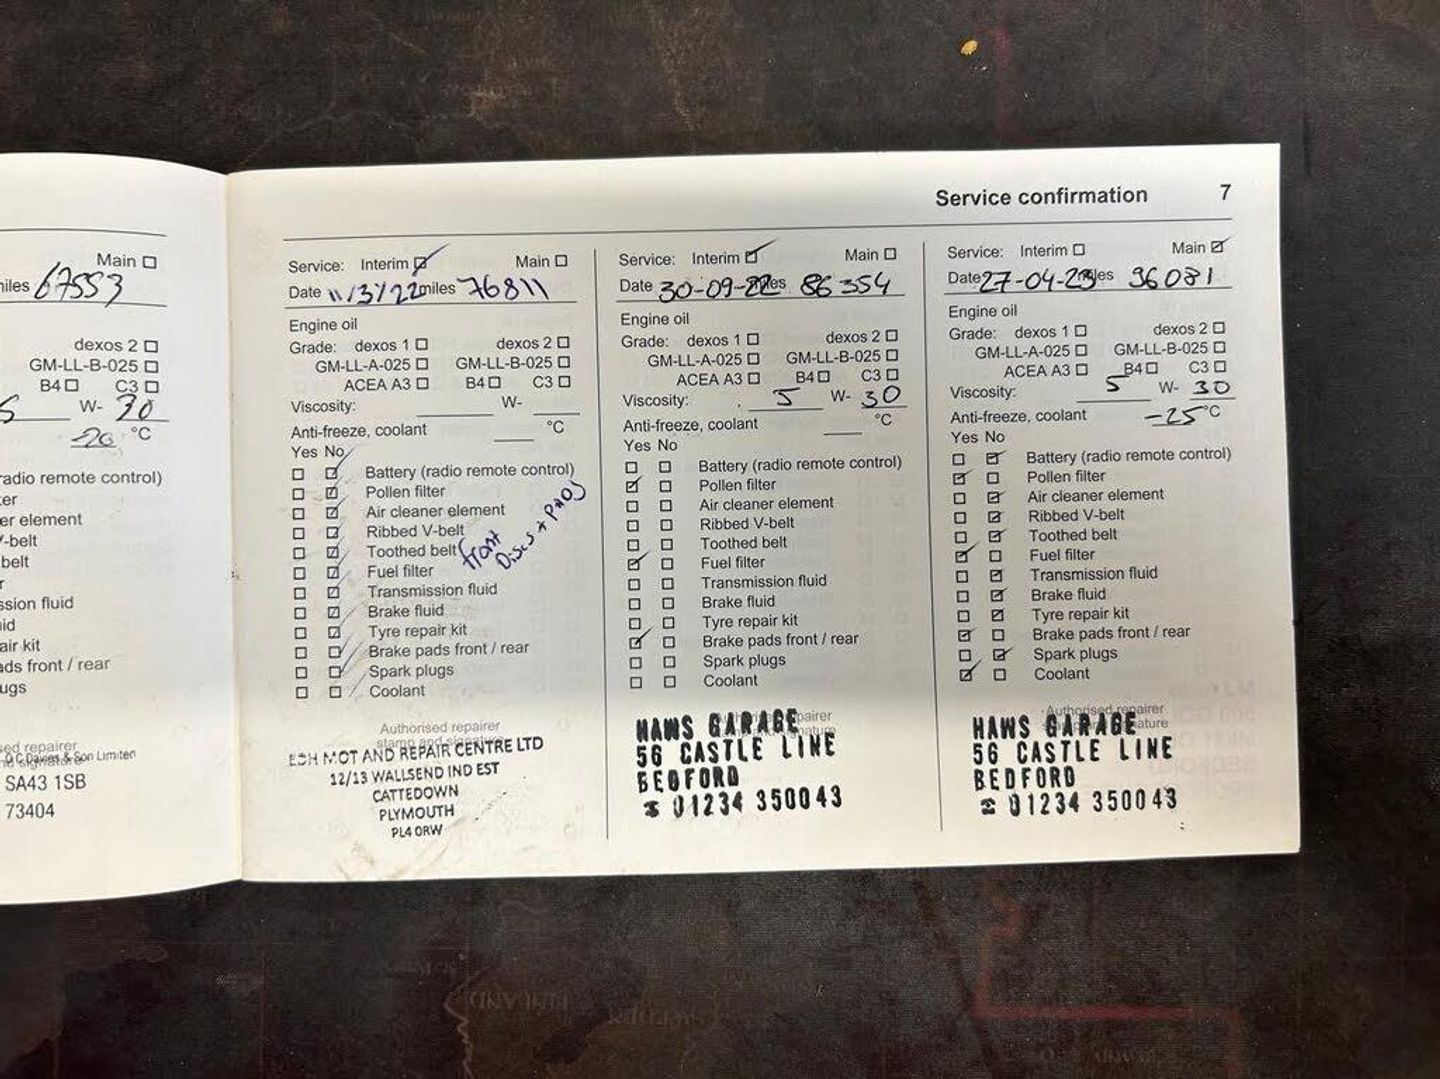 Service confirmation 7
Main
miles 67553
dexos 2
GM-LL-B-025
B4 C3
5 W- 30
-20 °C
radio remote control)
ter
er element
V-belt
belt
r
ssion fluid
uid
air kit
ads front / rear
ugs
sed repairer
O C Davies & Son
SA43 1SB
73404
Service: Interim Main
Date 11/3/22 miles 76811
Engine oil
Grade: dexos 1 dexos 2
GM-LL-A-025 GM-LL-B-025
ACEA A3 B4 C3
Viscosity: W-
Anti-freeze, coolant °C
Yes No
Battery (radio remote control)
Pollen filter
Air cleaner element
Ribbed V-belt
Toothed belt
Fuel filter
Transmission fluid
Brake fluid
Tyre repair kit
Brake pads front / rear
Spark plugs
Coolant
front
Discs + PADS
Authorised repairer
stamp and signature
MOT AND REPAIR CENTRE LTD
12/13 WALLSEND IND EST
CATTEDOWN
PLYMOUTH
PL4 0RW
Service: Interim Main
Date 30-09-22 miles 86354
Engine oil
Grade: dexos 1 dexos 2
GM-LL-A-025 GM-LL-B-025
ACEA A3 B4 C3
Viscosity: 5 W- 30
Anti-freeze, coolant °C
Yes No
Battery (radio remote control)
Pollen filter
Air cleaner element
Ribbed V-belt
Toothed belt
Fuel filter
Transmission fluid
Brake fluid
Tyre repair kit
Brake pads front / rear
Spark plugs
Coolant
Authorised repairer
stamp and signature
HAWS GARAGE
56 CASTLE LINE
BEDFORD
☎ 01234 350043
Service: Interim Main
Date 27-04-23 miles 96081
Engine oil
Grade: dexos 1 dexos 2
GM-LL-A-025 GM-LL-B-025
ACEA A3 B4 C3
Viscosity: 5 W- 30
Anti-freeze, coolant -25 °C
Yes No
Battery (radio remote control)
Pollen filter
Air cleaner element
Ribbed V-belt
Toothed belt
Fuel filter
Transmission fluid
Brake fluid
Tyre repair kit
Brake pads front / rear
Spark plugs
Coolant
Authorised repairer
stamp and signature
HAWS GARAGE
56 CASTLE LINE
BEDFORD
☎ 01234 350043